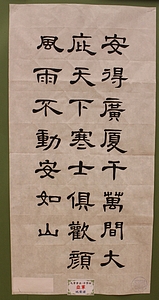 安得廣厦千萬間大
庇天下寒士俱歡顔
風雨不動安如山